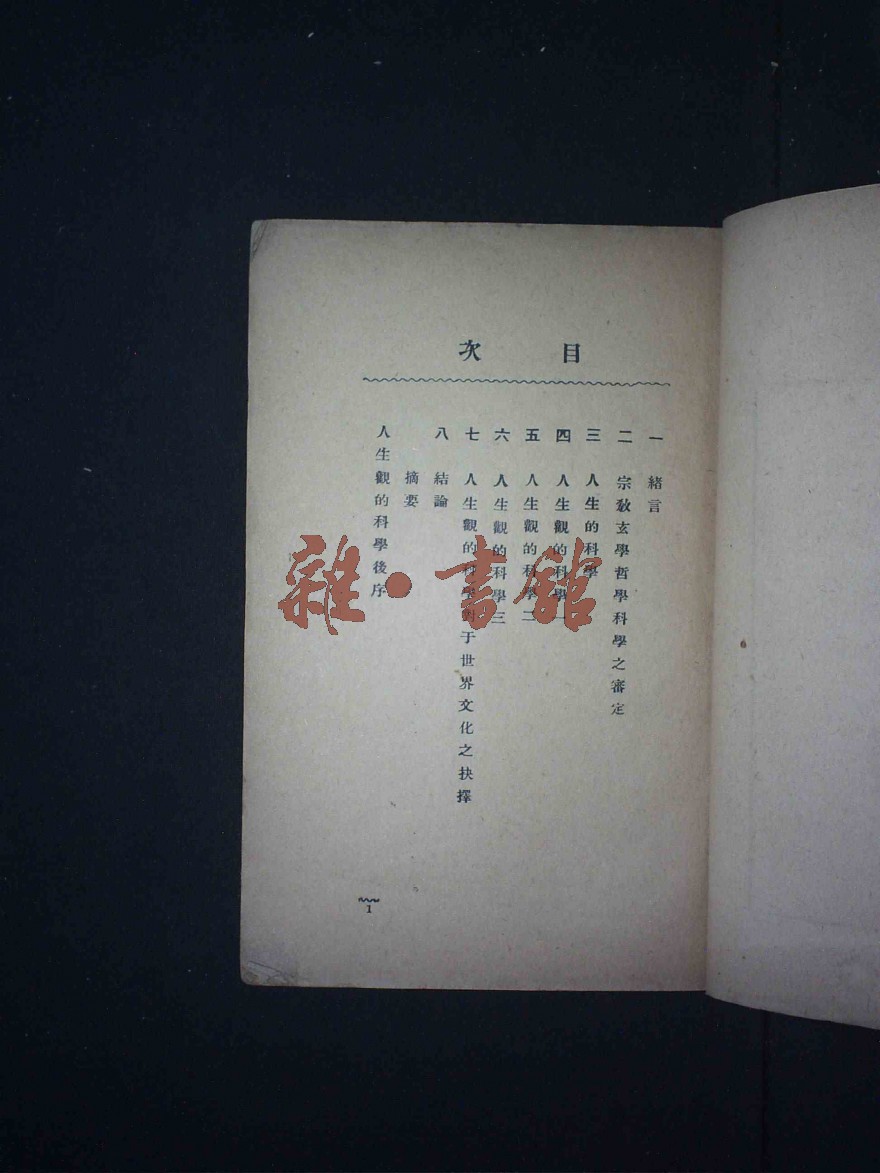 目次
一 緒言
二 宗教玄學哲學科學之審定
三 人生的科學
四 人生觀的科學一
五 人生觀的科學二
六 人生觀的科學三
七 人生觀的科學對于世界文化之抉擇
八 結論
摘要
人生觀的科學後序
1
雜·書館